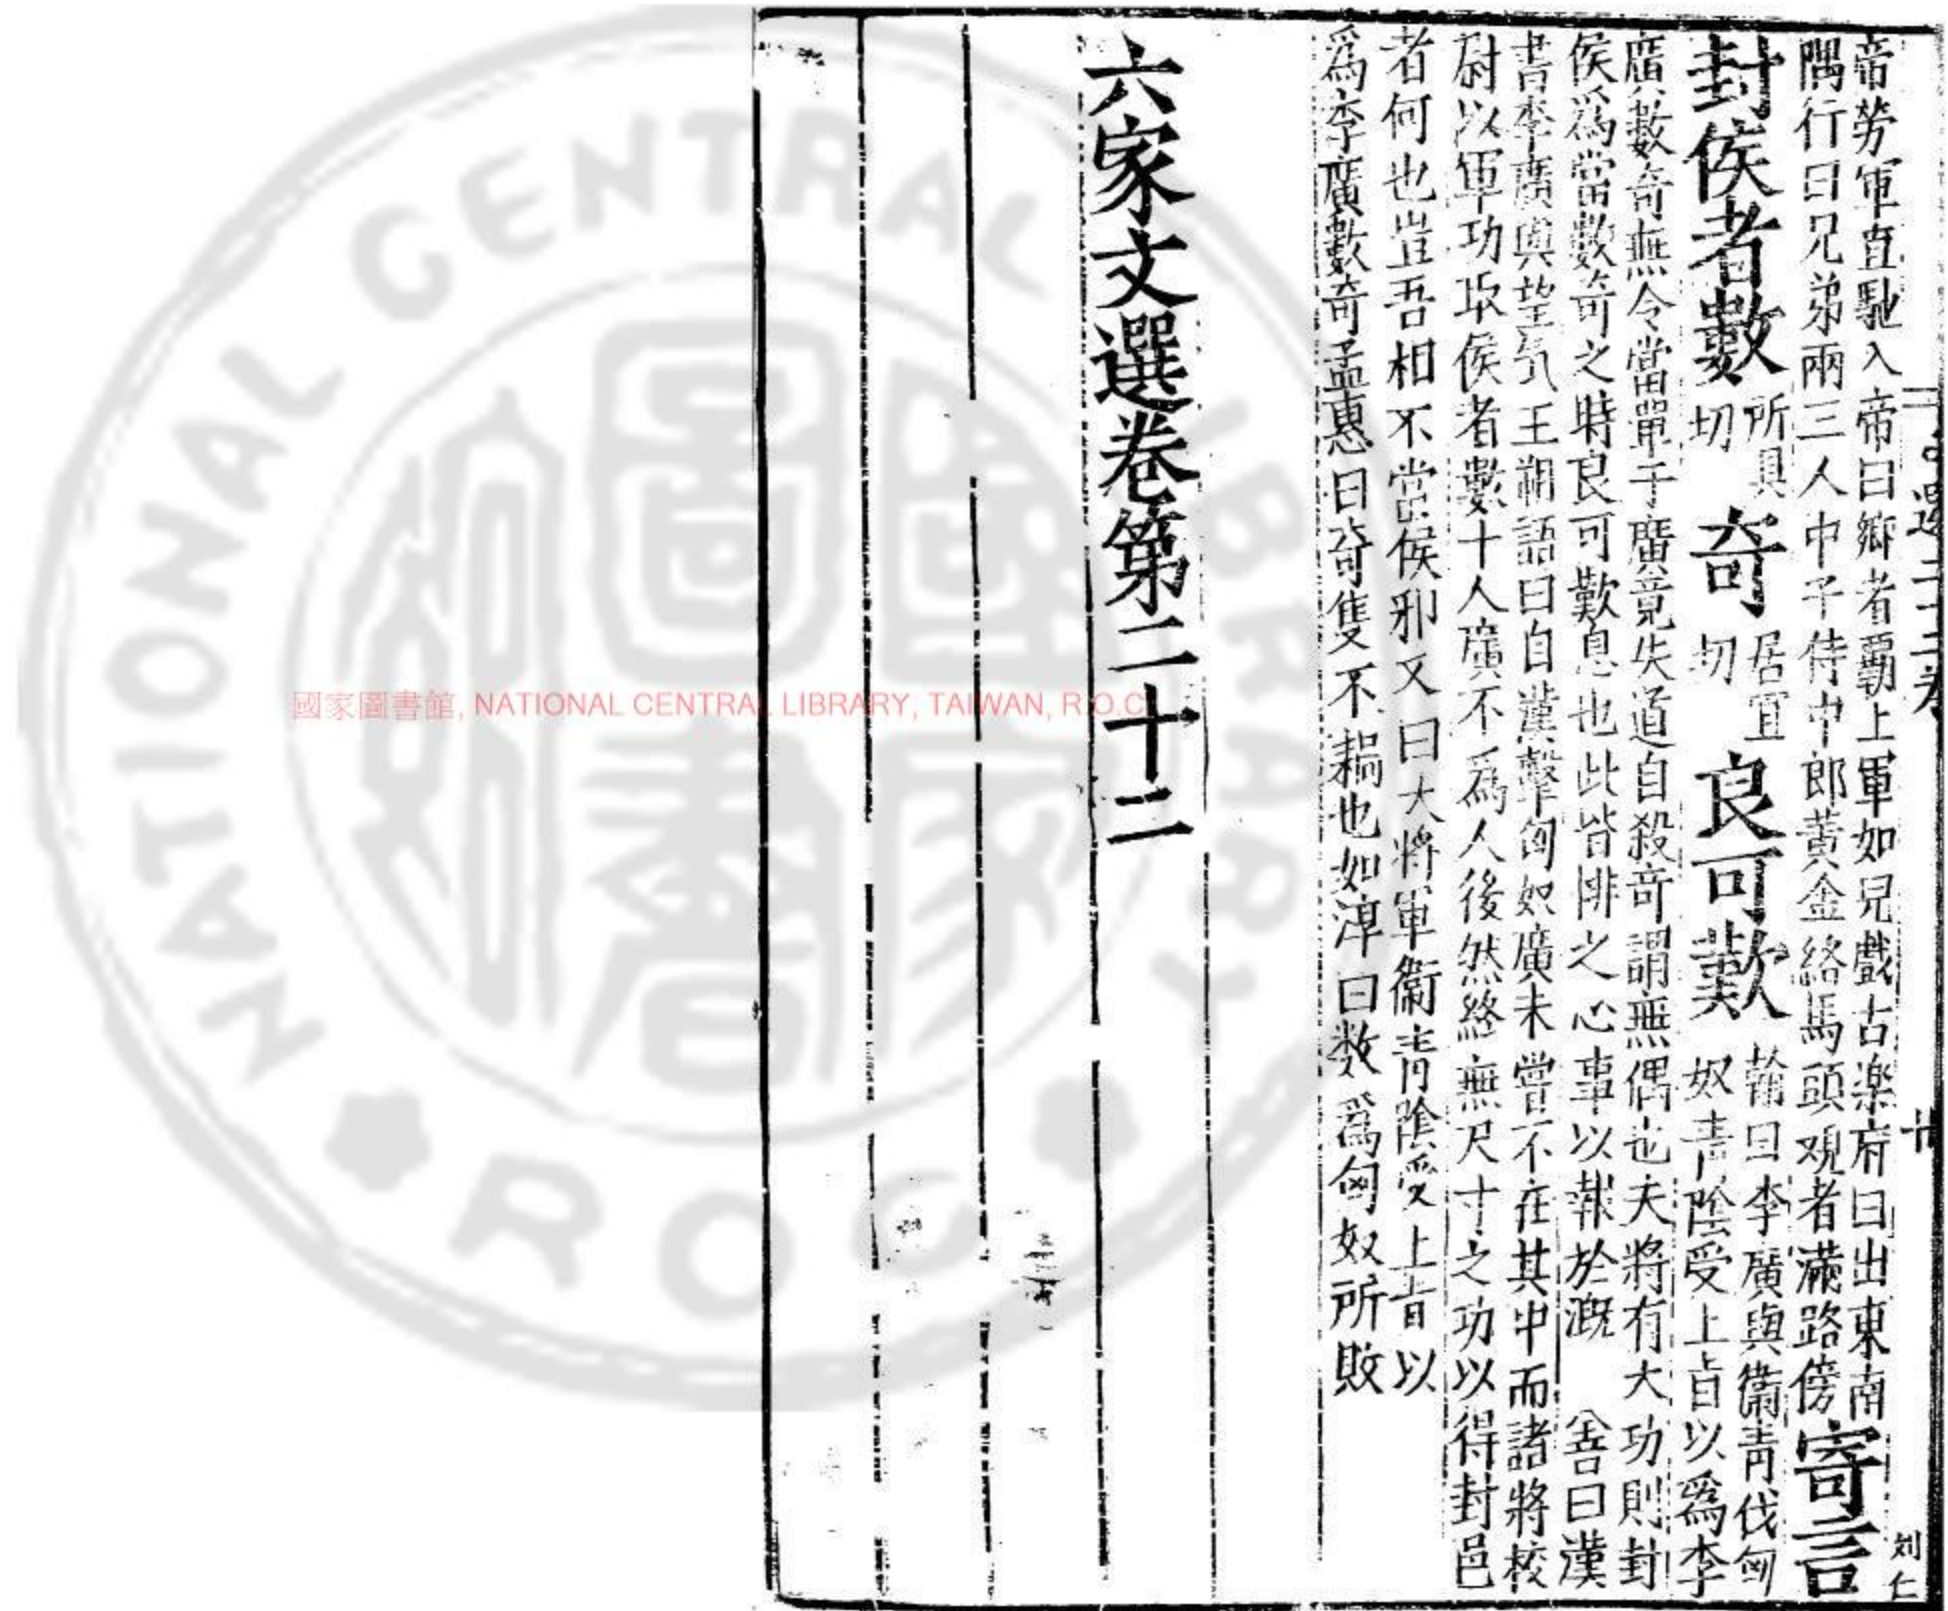 帝勞軍直馳入帝曰鄉者霸上軍如兒戲古楽府曰出東南
隅行曰兄弟兩三人中子侍中郎黃金絡馬頭观者滿路傍寄言
封侯者數所具切奇居宜切良可歎翰曰李廣與衞青伐匈奴青陰受上旨以為李
廣數奇無令當單于廣竟失道自殺奇謂無偶也夫將有大功則封
侯爲當數奇之時良可歎息也此皆排之心事以報於溉 善曰漢
書李廣與望氣王朔語曰自漢擊匈奴廣未嘗不在其中而諸將校
尉以軍功取侯者數十人廣不為人後然終無尺寸之功以得封邑
者何也豈吾相不當侯邪又曰大將軍衞青陰受上旨以
爲李廣數奇孟惠曰奇隻不耦也如淳曰数爲匈奴所敗
六家文選卷第二十二
二十二卷
廿
刘仁
國家圖書館, NATIONAL CENTRAL LIBRARY, TAIWAN, R.O.C
NATIONAL CENTRAL LIBRARY
ROC